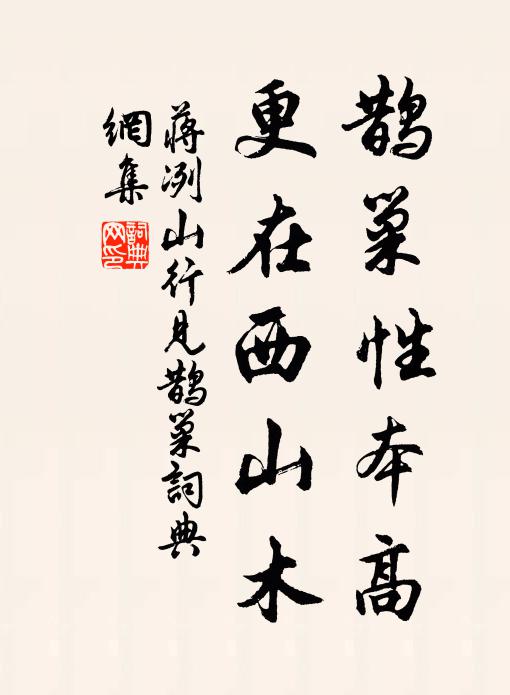 鹊巢性本高
更在西山木
蒋冽山行见鹊巢詞典
網集
詞典
网印